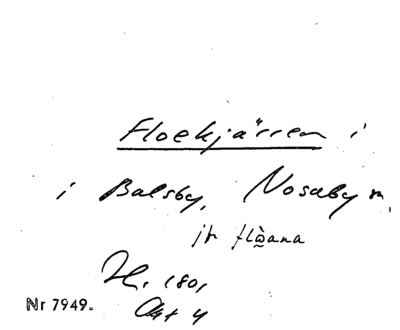 Floekjärren i
i Balsby, Nosaby m,
jr flåana
H. 180,
Akt 4
Nr 7949.